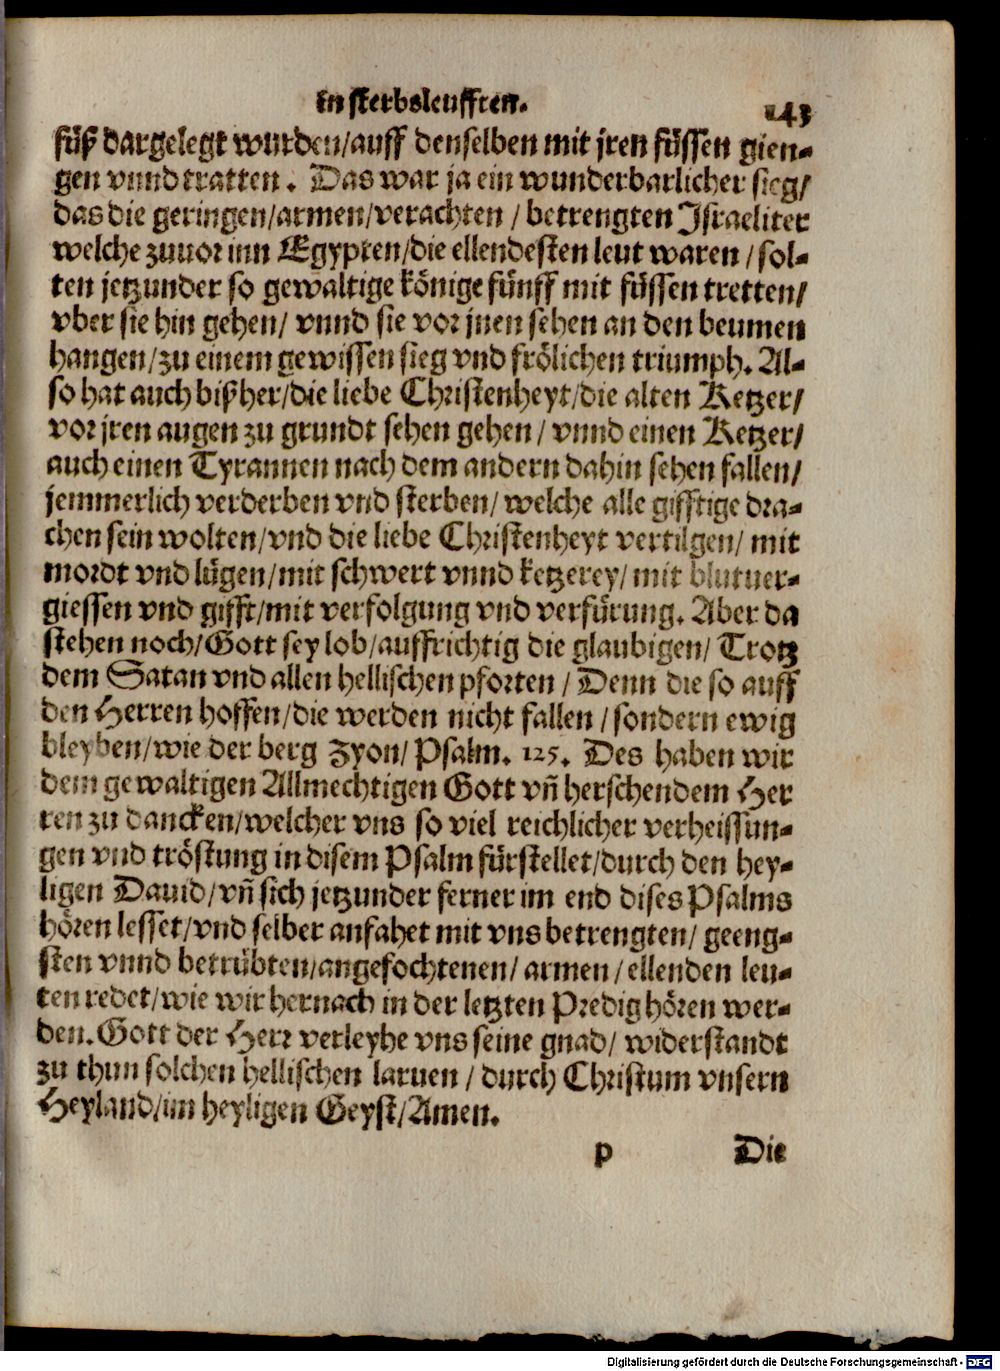 in sterbsleufften.
143
füß dargelegt wurden/auff denselben mit jren füssen gien-
gen vnnd tratten. Das war ja ein wunderbarlicher sieg/
das die geringen/armen/verachten / betrengten Israeliter
welche zuuor inn Egypten/die ellendesten leut waren / sol-
ten jetzunder so gewaltige könige fünff mit füssen tretten/
vber sie hin gehen/ vnnd sie vor jnen sehen an den beumen
hangen/zu einem gewissen sieg vnd frölichen triumph. Al-
so hat auch bißher/die liebe Christenheyt/die alten Ketzer/
vor jren augen zu grundt sehen gehen / vnnd einen Ketzer/
auch einen Tyrannen nach dem andern dahin sehen fallen/
jemmerlich verderben vnd sterben/ welche alle gifftige dra-
chen sein wolten/vnd die liebe Christenheyt vertilgen/ mit
mordt vnd lügen/mit schwert vnnd ketzerey/ mit blutuer-
giessen vnd gifft/mit verfolgung vnd verfürung. Aber da
stehen noch/Gott sey lob/auffrichtig die glaubigen/ Trotz
dem Satan vnd allen hellischen pforten / Denn die so auff
den Herren hoffen/die werden nicht fallen /sondern ewig
bleyben/wie der berg Zyon/ Psalm. 125. Des haben wir
dem gewaltigen Allmechtigen Gott vñ herschendem Her
ren zu dancken/welcher vns so viel reichlicher verheissun-
gen vnd tröstung in disem Psalm fürstellet/durch den hey-
ligen Dauid/vñ sich jetzunder ferner im end dises Psalms
hören lesset/vnd selber anfahet mit vns betrengten/ geeng-
sten vnnd betrübten/angefochtenen/ armen /ellenden leu-
ten redet/wie wir hernach in der letzten Predig hören wer-
den. Gott der Herr verleyhe vns seine gnad/ widerstandt
zu thun solchen hellischen laruen / durch Christum vnsern
Heyland/im heyligen Geyst/Amen.
p Die
Digitalisierung gefördert durch die Deutsche Forschungsgemeinschaft - DFG